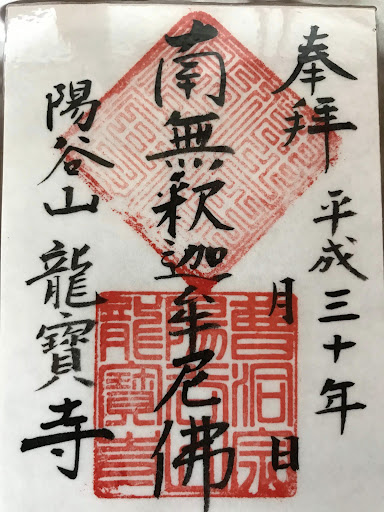 奉拜
平成三十年
月 日
南無釈迦牟尼佛
陽谷山 龍寳寺
曹洞宗
陽谷山
龍寳寺